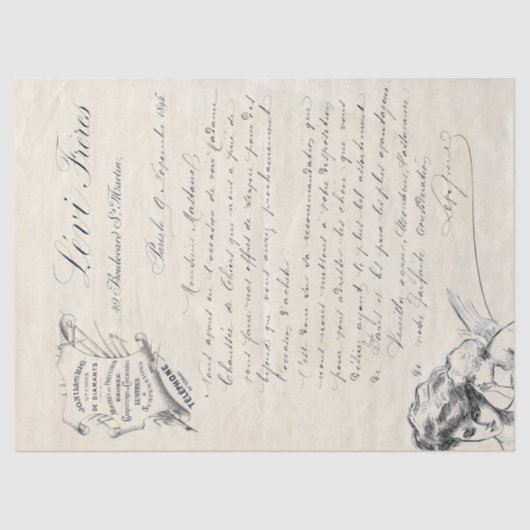 Lévi Frères
49 Boulevard St Martin.
JOAILLERIE
DE DIAMANTS
BRONZE
LUSTRES
&
SUSPENSIONS
TÉLÉPHONE
Paris le 9 Novembre 1895
Monsieur Mastaud
Nous avons eu l'occasion de voir Madame
Chaussée de Thiers qui nous a prié de
vous faire nos offres de service pour des
bijoux que vous aurez prochainement
l'occasion d'acheter.
C'est donc sur sa recommandation que
nous nous mettons à votre disposition
pour vous adresser les choix que vous
désirez ayant le plus bel assortiment
de Paris et les prix les plus avantageux.
Veuillez agréer, Monsieur, l'assurance
de notre parfaite considération